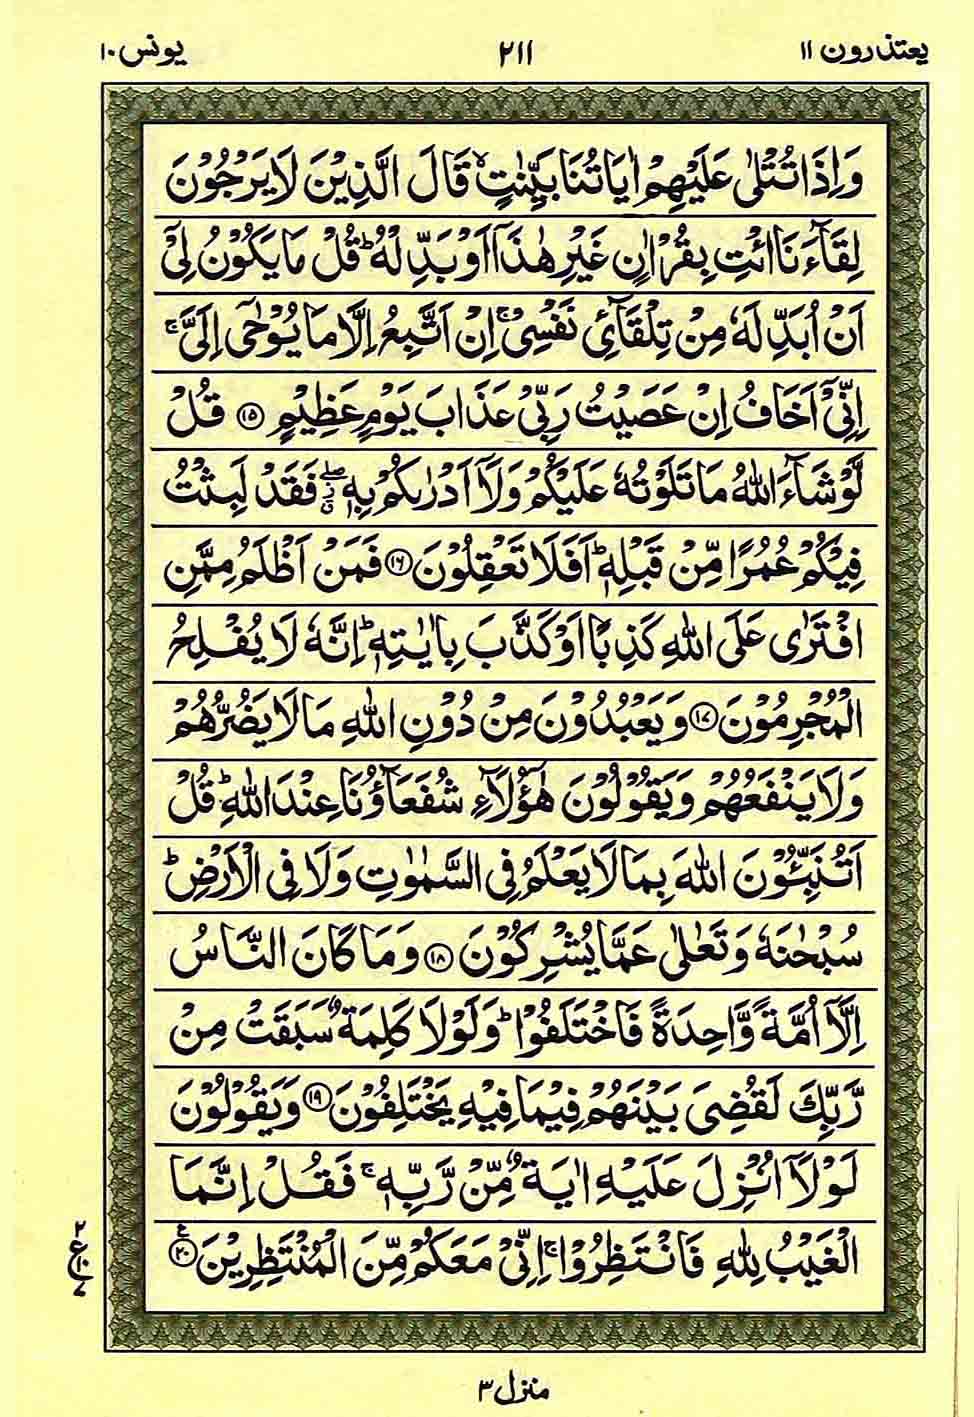 یعتذرون ۱۱
۲۱۱
یونس ۱۰
وَاِذَا تُتْلٰى عَلَيْهِمْ اٰيَاتُنَا بَيِّنٰتٍ ۙ قَالَ الَّذِيْنَ لَا يَرْجُوْنَ
لِقَآءَنَا ائْتِ بِقُرْاٰنٍ غَيْرِ هٰذَآ اَوْ بَدِّلْهُ ؕ قُلْ مَا يَكُوْنُ لِيْٓ
اَنْ اُبَدِّلَهٗ مِنْ تِلْقَآئِ نَفْسِيْ ۚ اِنْ اَتَّبِعُ اِلَّا مَا يُوْحٰٓى اِلَيَّ ۚ
اِنِّيْٓ اَخَافُ اِنْ عَصَيْتُ رَبِّيْ عَذَابَ يَوْمٍ عَظِيْمٍ ۝۱۵ قُلْ
لَّوْ شَآءَ اللّٰهُ مَا تَلَوْتُهٗ عَلَيْكُمْ وَلَآ اَدْرٰىكُمْ بِهٖ ۖز فَقَدْ لَبِثْتُ
فِيْكُمْ عُمُرًا مِّنْ قَبْلِهٖ ؕ اَفَلَا تَعْقِلُوْنَ ۝۱۶ فَمَنْ اَظْلَمُ مِمَّنِ
افْتَرٰى عَلَى اللّٰهِ كَذِبًا اَوْ كَذَّبَ بِاٰيٰتِهٖ ؕ اِنَّهٗ لَا يُفْلِحُ
الْمُجْرِمُوْنَ ۝۱۷ وَيَعْبُدُوْنَ مِنْ دُوْنِ اللّٰهِ مَا لَا يَضُرُّهُمْ
وَلَا يَنْفَعُهُمْ وَيَقُوْلُوْنَ هٰٓؤُلَآءِ شُفَعَآؤُنَا عِنْدَ اللّٰهِ ؕ قُلْ
اَتُنَبِّـُٔوْنَ اللّٰهَ بِمَا لَا يَعْلَمُ فِي السَّمٰوٰتِ وَلَا فِي الْاَرْضِ ؕ
سُبْحٰنَهٗ وَتَعٰلٰى عَمَّا يُشْرِكُوْنَ ۝۱۸ وَمَا كَانَ النَّاسُ
اِلَّآ اُمَّةً وَّاحِدَةً فَاخْتَلَفُوْا ؕ وَلَوْلَا كَلِمَةٌ سَبَقَتْ مِنْ
رَّبِّكَ لَقُضِيَ بَيْنَهُمْ فِيْمَا فِيْهِ يَخْتَلِفُوْنَ ۝۱۹ وَيَقُوْلُوْنَ
لَوْلَآ اُنْزِلَ عَلَيْهِ اٰيَةٌ مِّنْ رَّبِّهٖ ۚ فَقُلْ اِنَّمَا
الْغَيْبُ لِلّٰهِ فَانْتَظِرُوْا ۚ اِنِّيْ مَعَكُمْ مِّنَ الْمُنْتَظِرِيْنَ ۝۲۰ۧ
۲
ع ۱۰
۷
منزل ۳